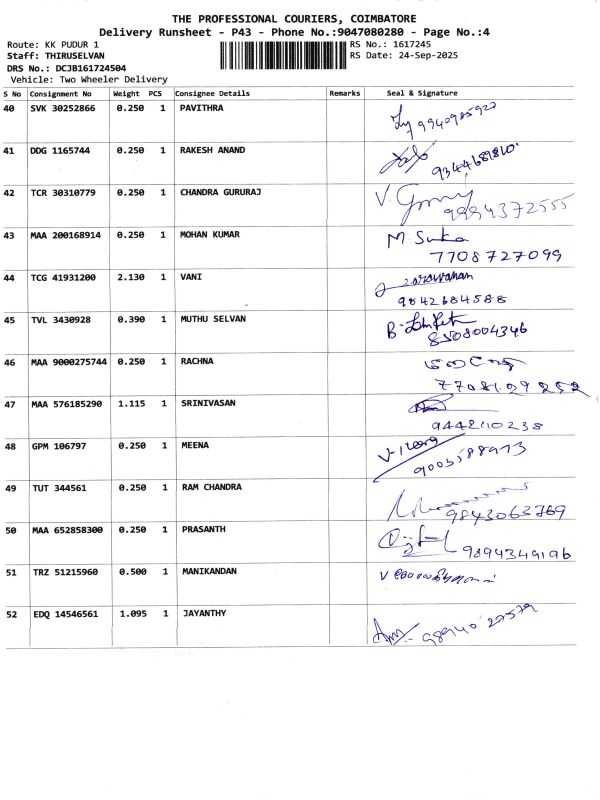 THE PROFESSIONAL COURIERS, COIMBATORE
Delivery Runsheet - P43 - Phone No.:9047080280 - Page No.:4
Route: KK PUDUR 1 RS No.: 1617245
Staff: THIRUSELVAN RS Date: 24-Sep-2025
DRS No.: DCJB161724504
Vehicle: Two Wheeler Delivery
S No Consignment No Weight PCS Consignee Details Remarks Seal & Signature
40 SVK 30252866 0.250 1 PAVITHRA
9940985922
41 DDG 1165744 0.250 1 RAKESH ANAND
9344689810
42 TCR 30310779 0.250 1 CHANDRA GURURAJ V.
9994372555
43 MAA 200168914 0.250 1 MOHAN KUMAR M.
7708727099
44 TCG 41931200 2.130 1 VANI saravanan
9842684588
45 TVL 3430928 0.390 1 MUTHU SELVAN B.
8508004346
46 MAA 9000275744 0.250 1 RACHNA
7708129252
47 MAA 576185290 1.115 1 SRINIVASAN
9442110238
48 GPM 106797 0.250 1 MEENA
9003588973
49 TUT 344561 0.250 1 RAM CHANDRA
9843063769
50 MAA 652858300 0.250 1 PRASANTH
9894349196
51 TRZ 51215960 0.500 1 MANIKANDAN V
52 EDQ 14546561 1.095 1 JAYANTHY